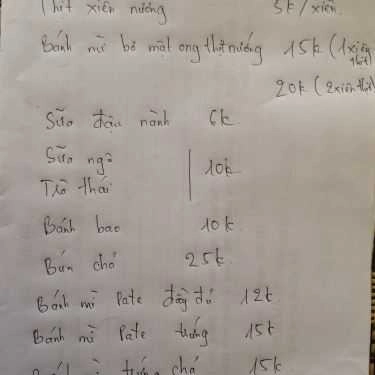 Thịt xiên nướng 5k/xiên.
Bánh mì bơ mật ong thịt nướng 15k (1 xiên thịt)
20k (2 xiên thịt)
Sữa đậu nành 6k
Sữa ngô 10k
Trà thái
Bánh bao 10k
Bún chả 25k
Bánh mì Pate đầy đủ 12k
Bánh mì Pate trứng 15k
Bánh mì trứng chả 15k